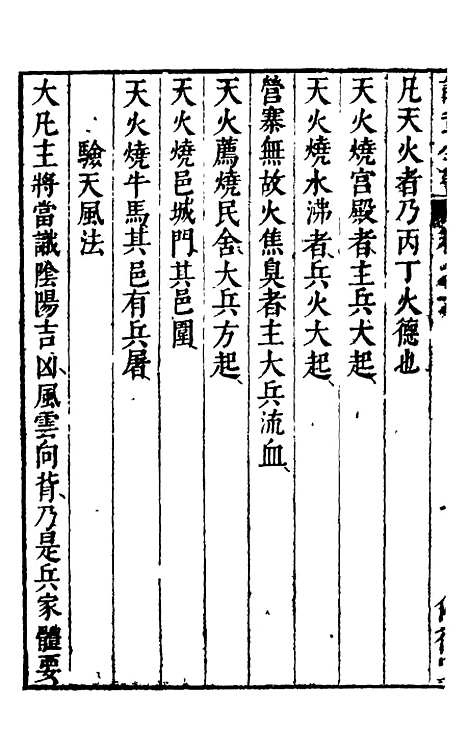 凡天火者乃丙丁火德也
天火燒宮殿者主兵犬起
天火燒水沸者兵火大起
營寨無故火焦臭者主大兵流血
天火薦燒民舍大兵方起
天火燒邑城門其邑圍
天火燒牛馬其邑有兵屠
驗天風法
大凡主將當識陰陽吉凶風雲向背乃是兵家體要